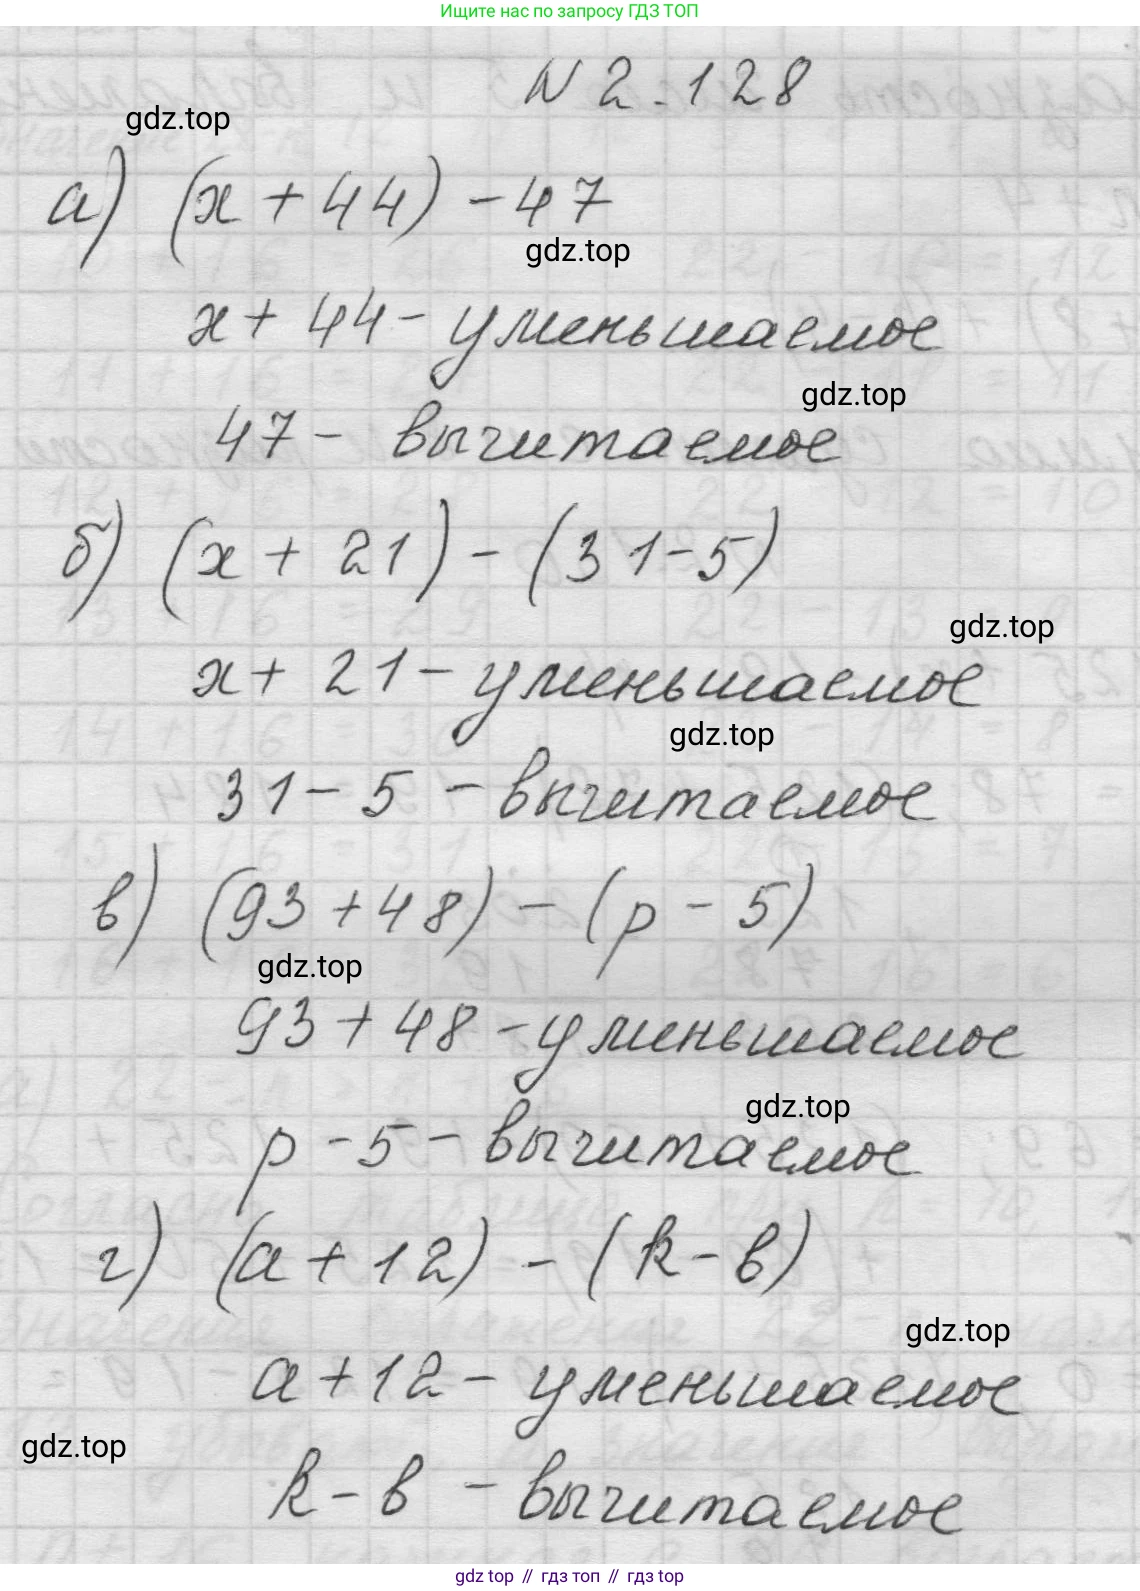 Ищите нас по запросу ГДЗ ТОП
N 2.128
gdz.top
а) (x + 44) - 47
gdz.top
x + 44 - уменьшаемое
gdz.top
47 - вычитаемое
б) (x + 21) - (31 - 5)
gdz.top
x + 21 - уменьшаемое
gdz.top
31 - 5 - вычитаемое
в) (93 + 48) - (p - 5)
gdz.top
93 + 48 - уменьшаемое
gdz.top
p - 5 - вычитаемое
г) (a + 12) - (k - b)
gdz.top
a + 12 - уменьшаемое
gdz.top
k - b - вычитаемое
gdz top // гдз топ // гдз top